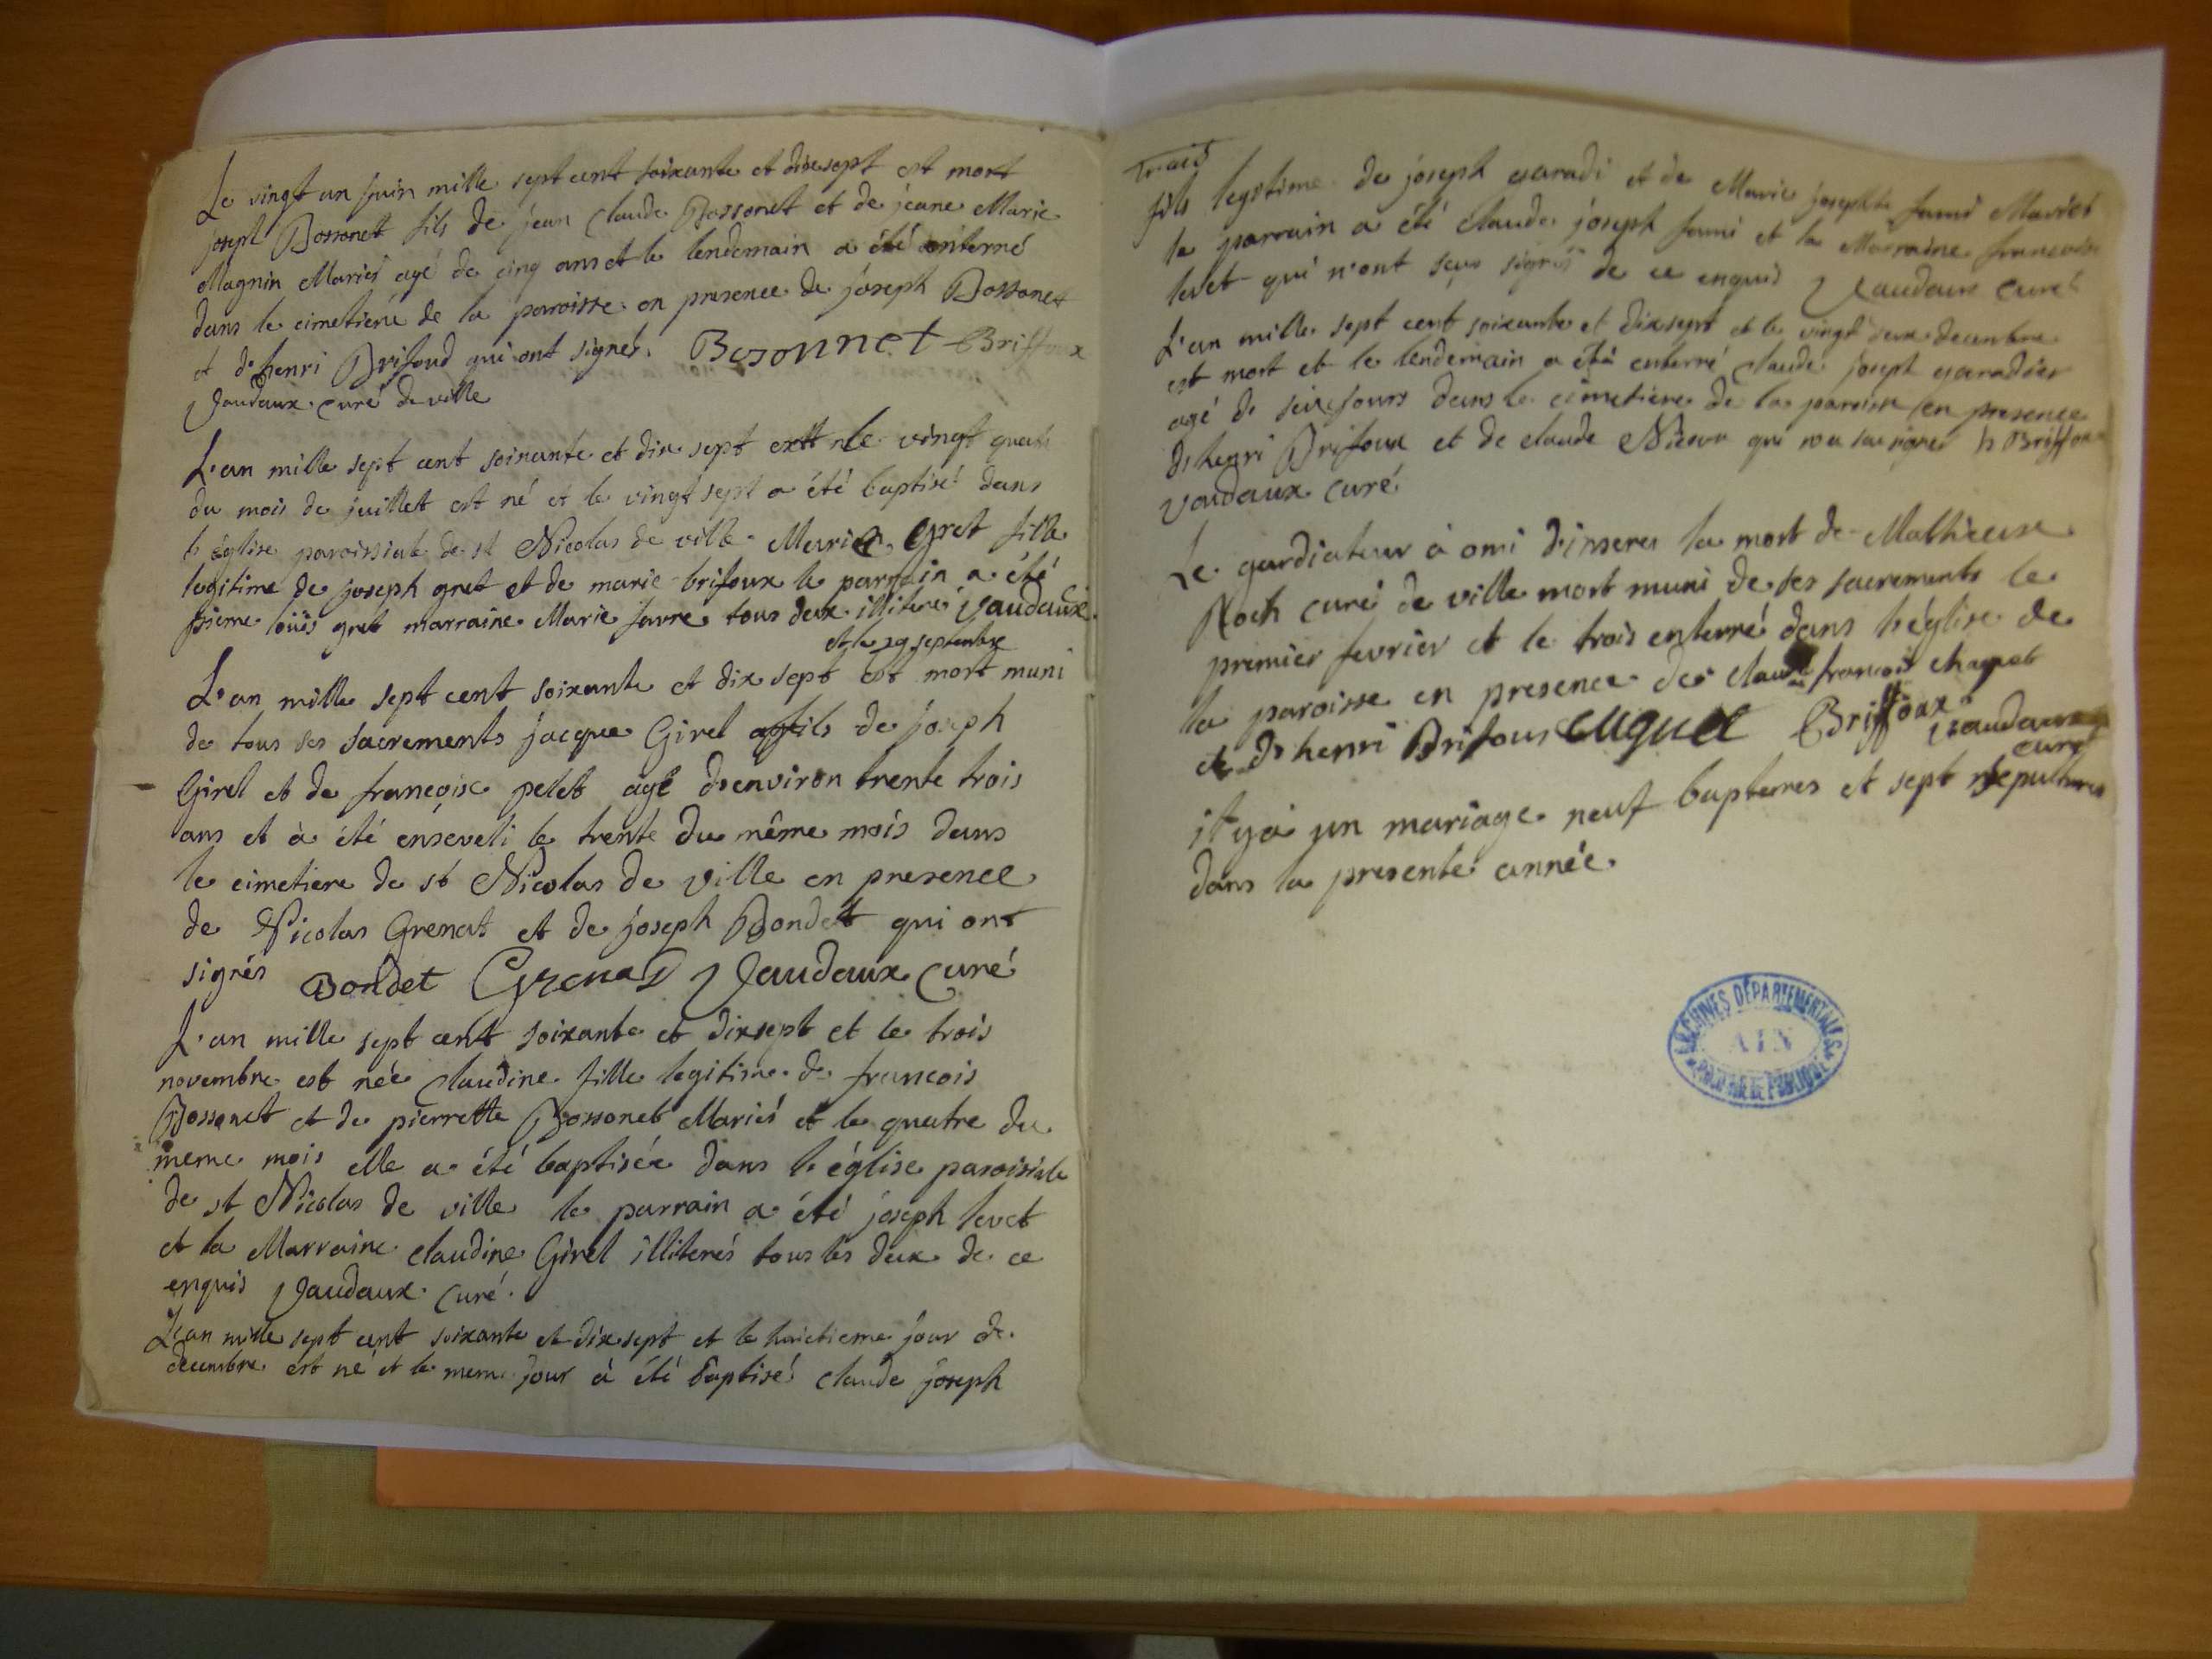 Le vingt un juin mille sept cent soixante et dixsept est mort
joseph Bossonet fils de jean Claude Bossonet et de jeane Marie
Magnin Mariés agé de cinq ans et le lendemain a été enterré
dans le cimetiere de la paroisse en presence de joseph Bossonet
et d'henri Brifoud qui ont signés. Bosonnet Briffoux
Vaudaux curé de ville
L'an mille sept cent soixante et dix sept et le vingt quatr
du mois de juillet est né et le vingt sept a été baptisé dans
l'église paroissiale de st Nicolas de ville Marie gret fille
legitime de joseph gret et de marie brifoux le parrain a été
pierre loüis gret marraine Marie favre tous deux illiteré Vaudaux
et le 29 septembre
L'an mille sept cent soixante et dix sept est mort muni
de tous ses sacrements jacque Girel fils de joseph
Girel et de françoise pelet agé d'environ trente trois
ans et à été enseveli le trente du même mois dans
le cimetiere de st Nicolas de ville en presence
de Nicolas Grenat et de joseph Bondet qui ont
signés Bondet Grenat Vaudaux curé
L'an mille sept cent soixante et dixsept et le trois
novembre est née claudine fille legitime de francois
Bossonet et de pierrette Bossonet Mariés et le quatre du
meme mois elle a été baptisée dans l'église paroisiale
de st Nicolas de ville le parrain a été joseph levet
et la Marraine claudine Girel illiterés tous les deux de ce
enquis Vaudaux curé.
L'an mille sept cent soixante et dixsept et le huictieme jour de
decembre est né et le meme jour à été baptisé claude joseph
Trois
fils legitime de joseph garadi et de Marie josephte Mariés
le parrain a été claude joseph et la Marraine francoise
levet qui n'ont seus signés de ce enquis Vaudaux curé
L'an mille sept cent soixante et dixsept et le vingt deux decembre
est mort et le lendemain a été enterré claude joseph garadier
agé de seize jours dans le cimetiere de la paroisse en presence
d'henri Brifoux et de claude qui n'a su signer h Briffoux
Vaudaux curé
Le gardiateur à omi d'inserer la mort de Mathieux
Roch curé de ville mort muni de ses sacrements le
premier fevrier et le trois enterré dans l'église de
la paroisse en presence de claude francois chaquet
et d'henri Brifoux Briffoux Vaudaux
curé
il y a un mariage neuf baptemes et sept sepultures
dans la presente année.
ARCHIVES DÉPARTEMENTALES
AIN